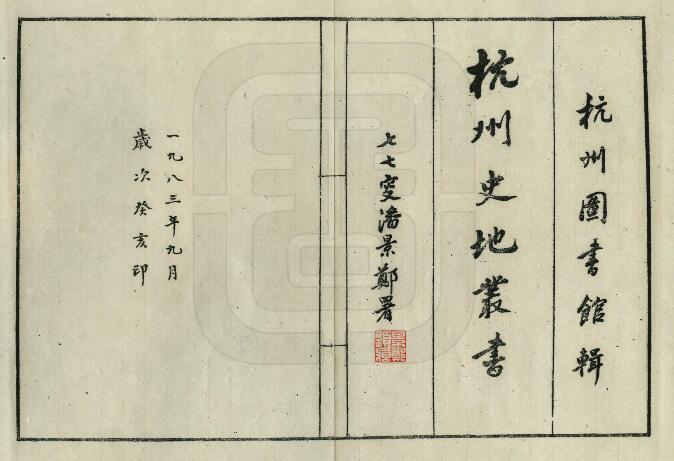 杭州圖書館輯
杭州史地叢書
七七叟潘景鄭署
一九八三年九月
歲次癸亥印